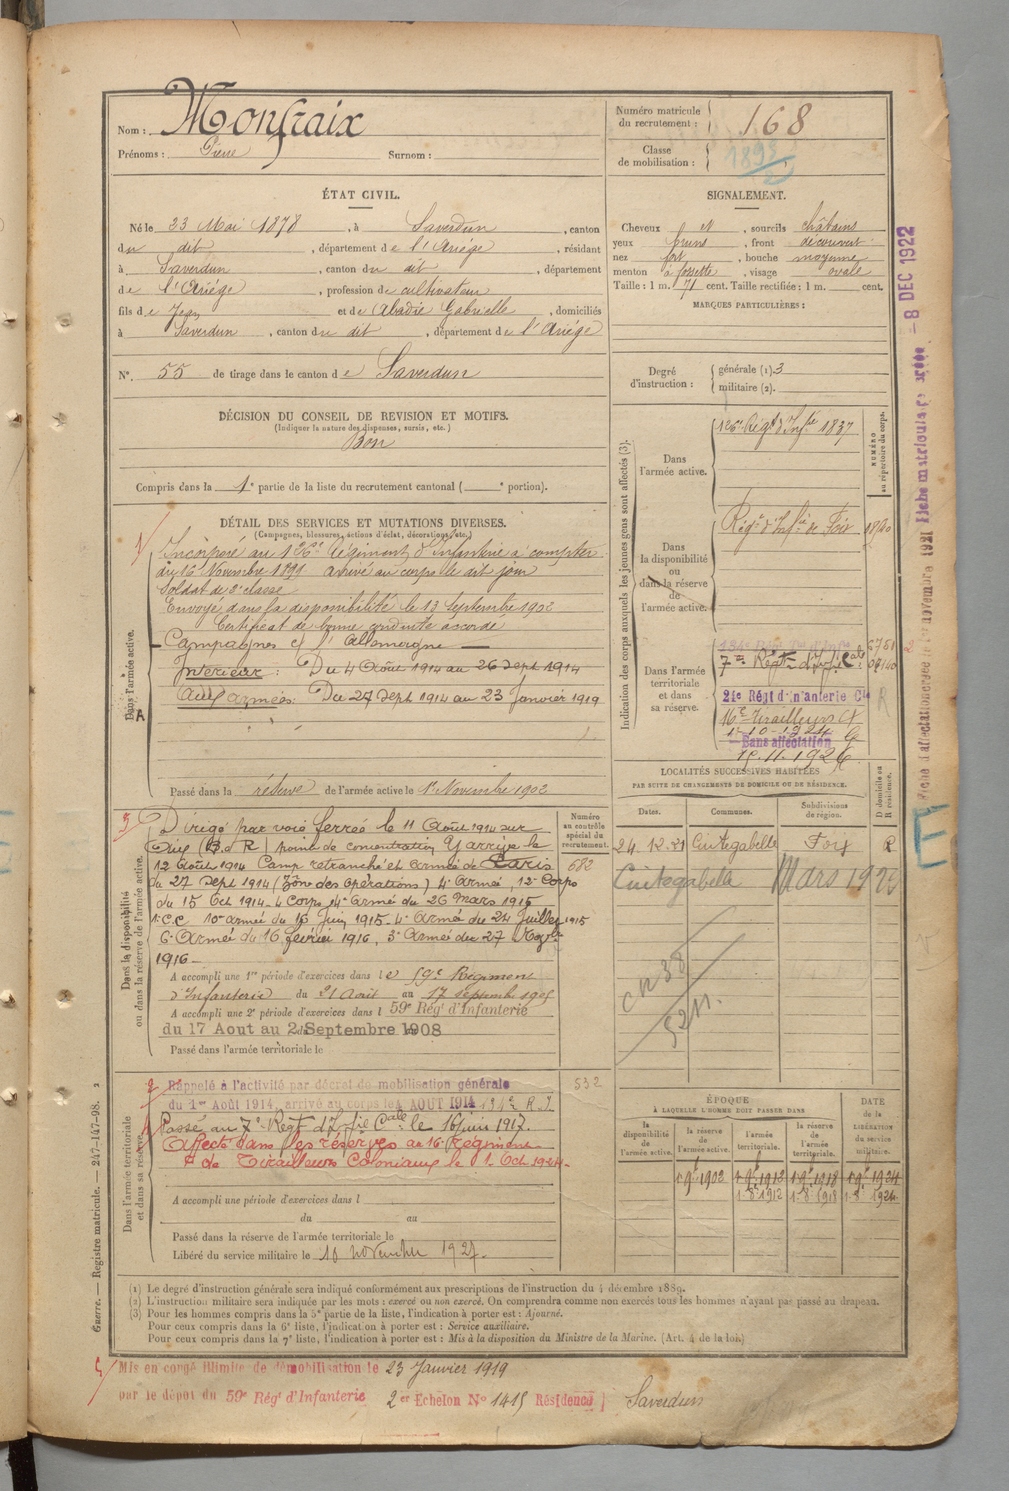 Nom : Monfraix
Prénoms : Pierre Surnom :
Numéro matricule du recrutement : 168
Classe de mobilisation : 189
ÉTAT CIVIL.
Né le 23 Mai 1878, à Saverdun, canton
du dit, département de l'Ariège, résidant
à Saverdun, canton du dit, département
de l'Ariège, profession de cultivateur
fils de Jean et de Abadie Gabrielle, domiciliés
à Saverdun, canton du dit, département de l'Ariège
N° 55 de tirage dans le canton de Saverdun
DÉCISION DU CONSEIL DE REVISION ET MOTIFS.
(Indiquer la nature des dispenses, sursis, etc.)
Bon
Compris dans la 1e partie de la liste du recrutement cantonal ( e portion).
SIGNALEMENT.
Cheveux N, sourcils châtains
yeux bruns, front découvert
nez fort, bouche moyenne
menton à fossette, visage ovale
Taille : 1 m. 71 cent. Taille rectifiée : 1 m. cent.
MARQUES PARTICULIÈRES :
Degré d'instruction : générale (1). 3
militaire (2).
DÉTAIL DES SERVICES ET MUTATIONS DIVERSES.
(Campagnes, blessures, actions d'éclat, décorations, etc.)
Dans l'armée active.
Incorporé au 126e Régiment d'Infanterie à compter
du 16 Novembre 1899 arrivé au corps le dit jour
Soldat de 2e classe
Envoyé dans la disponibilité le 13 Septembre 1902
Certificat de bonne conduite accordé
Campagnes c/ l'Allemagne
Intérieur : Du 4 Août 1914 au 26 Sept 1914
Aux armées : Du 27 Sept 1914 au 23 Janvier 1919
Passé dans la réserve de l'armée active le 1er Novembre 1902
Indication des corps auxquels les jeunes gens sont affectés (3).
NUMÉRO au répertoire du corps.
Dans l'armée active.
126e Régt d'Infie 1837
Dans la disponibilité ou dans la réserve de l'armée active.
Régt d'Infie de Foix 1890
Dans l'armée territoriale et dans sa réserve.
7me Regtn d'Infie Cale
24e Régt d'Infanterie Cle
16e Tirailleurs
1-10-1924
Sans affectation
15.11.1926
R
Dans la disponibilité ou dans la réserve de l'armée active.
Numéro au contrôle spécial du recrutement.
682
Dirigé par voie ferrée le 11 Août 1914 sur
point de concentration Y arrive le
12 Août 1914 Camp retranché et Armée de Paris
du 27 Sept 1914 (Zône des opérations) 4e Armée, 12e Corps
du 15 Oct 1914 - 4 Corps 4e armée du 26 mars 1915
1er C.C 10e armée du 16 Juin 1915. 4e Armée du 24 Juillet 1915
6e Armée du 16 février 1916, 3e Armée du 27
1916 -
A accompli une 1re période d'exercices dans le 59e Régiment
d'Infanterie du 21 Avril au 17 septembre 1905
A accompli une 2e période d'exercices dans l 59e Régt d'Infanterie
du 17 Aout au 2 Septembre 1908
Passé dans l'armée territoriale le
LOCALITÉS SUCCESSIVES HABITÉES
PAR SUITE DE CHANGEMENTS DE DOMICILE OU DE RÉSIDENCE.
Dates. Communes. Subdivisions de région. D domicile ou R résidence.
24.12.21 Cintegabelle Foix R
Cintegabelle Mars 192
Dans l'armée territoriale et dans sa réserve.
532
Rappelé à l'activité par décret de mobilisation générale
du 1er Août 1914, arrivé au corps le 4 AOUT 1914 134e R.I.
Passé au 7e Regt d'Infie Cale le 16 juin 1917.
Affecté dans les réserves au 16e Régiment
de Tirailleurs Coloniaux le 1. Oct 1924
A accompli une période d'exercices dans l
du au
Passé dans la réserve de l'armée territoriale le
Libéré du service militaire le 10 novembre 1927.
ÉPOQUE
À LAQUELLE L'HOMME DOIT PASSER DANS
DATE de la LIBÉRATION du service militaire.
la disponibilité de l'armée active. la réserve de l'armée active. l'armée territoriale. la réserve de l'armée territoriale.
1-9e 1902 1-9e 1912 1-9e 1918 1-9e 1924
1-8e 1912 1-8e 1918 1-8e 1924
(1) Le degré d'instruction générale sera indiqué conformément aux prescriptions de l'instruction du 4 décembre 1889.
(2) L'instruction militaire sera indiquée par les mots : exercé ou non exercé. On comprendra comme non exercés tous les hommes n'ayant pas passé au drapeau.
(3) Pour les hommes compris dans la 5e partie de la liste, l'indication à porter est : Ajourné.
Pour ceux compris dans la 6e liste, l'indication à porter est : Service auxiliaire.
Pour ceux compris dans la 7e liste, l'indication à porter est : Mis à la disposition du Ministre de la Marine. (Art. 4 de la loi.)
Mis en congé illimité de démobilisation le 23 Janvier 1919
par le dépôt du 59e Régt d'Infanterie 2er Echelon No 1415 Résidence } Saverdun
Guerre. — Registre matricule. — 247-147-98.
Fiche d'affectation créée le novembre 1921 Fiche matricule créée - 8 DEC 1922
E